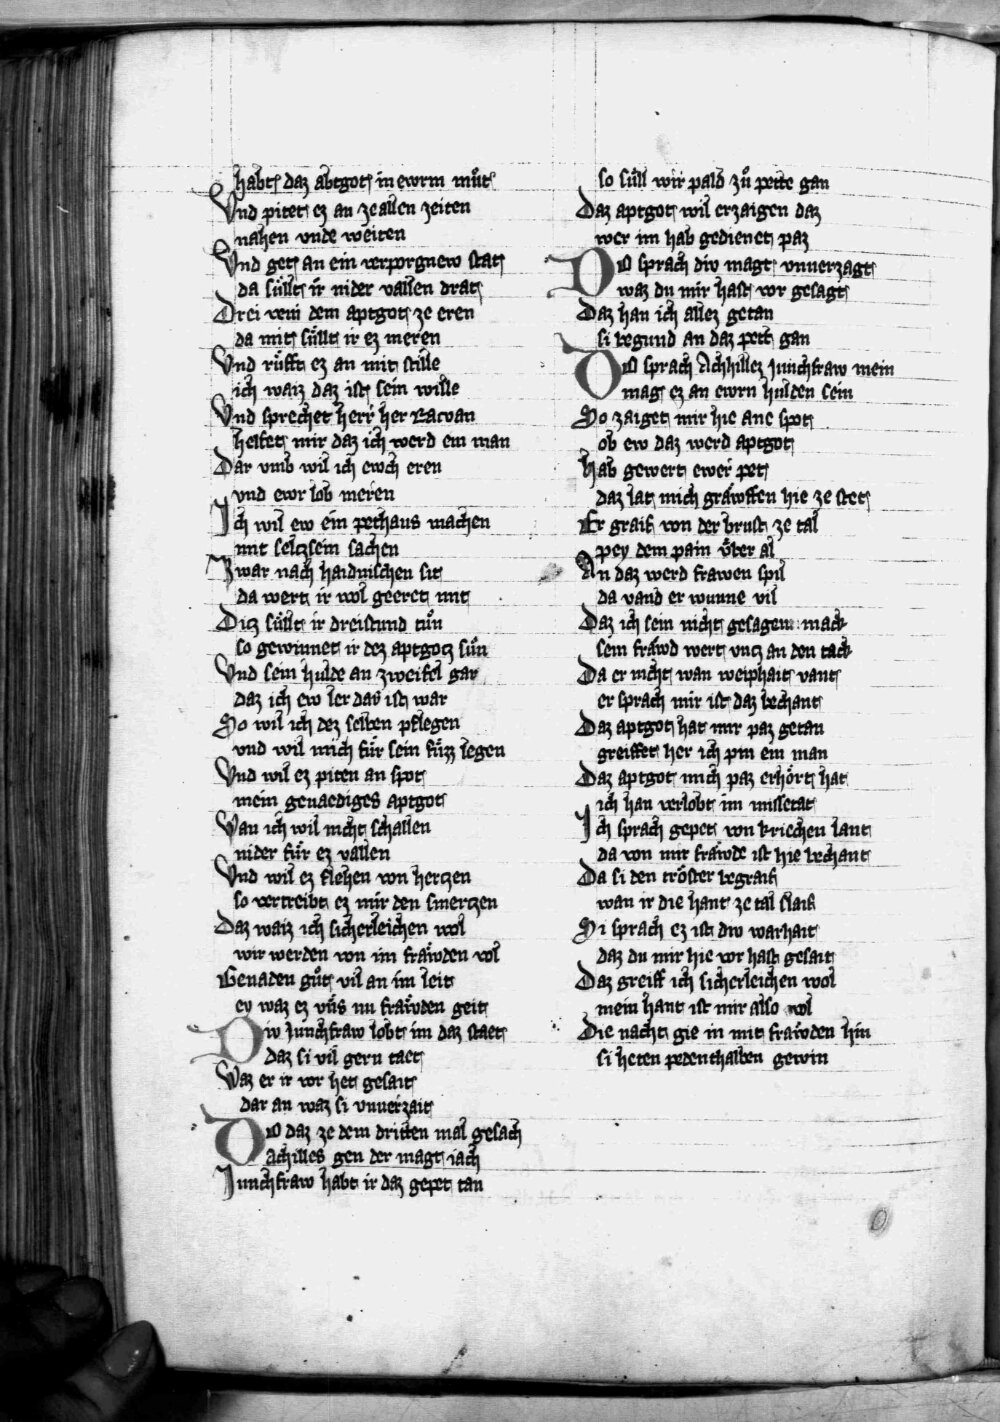 habt daz abtgot in ewrm můt
Vnd pitet ez an ze allen zeiten
nahen vnde weiten
Vnd get an ein verporgnew stat
da sullt ir nider vallen drat
Drei veni dem aptgot ze eren
da mit sullt ir ez meren
Vnd růfft ez an mit stille
ich waiz daz ist sein wille
Vnd sprechet herr her
helfet mir daz ich werd ein man
Dar vmb wil ich ewch eren
vnd ewr lob meren
Ich wil ew ein pethaus machen
mit seltzsein sachen
Zwar nach haidnischen sit
da wert ir wol geeret mit
Ditz sullt ir dreistund tůn
so gewinnet ir dez aptgotz sůn
Vnd sein hulde an zweifel gar
daz ich ew ler daz ist war
So wil ich dez selben pflegen
vnd wil mich fůr sein fůzz legen
Vnd wil ez piten an spot
mein genaediges aptgot
Wan ich wil nicht schallen
nider fůr ez vallen
Vnd wil ez flehen von hertzen
so vertreibt ez mir den smertzen
Daz waiz ich sicherleichen wol
wir werden von im fräwden vol
Genaden gůt vil an im leit
ey waz ez vns nu fräwden geit
Div Junchfraw lobt im daz staet
daz si vil gern taet
Waz er ir vor het gesait
dar an waz si vnuerzait
Do daz ze dem dritten mal gesach
achilles gen der magt iach
Junchfraw habt ir daz gepet tan
so sůll wir pald zů pette gan
Daz aptgot wil erzaigen daz
wer im hab gedienet paz
Do sprach div magt vnuerzagt
waz du mir hast vor gesagt
Daz han ich allez getan
si begund an daz pett gan
Do sprach Achhillez Junchfraw mein
mag ez an ewrn hulden sein
So zaiget mir hie ane spot
ob ew daz werd aptgot
hab gewert ewer pet
daz lat mich gräwffen hie ze stet
Er graif von der brust ze tal
pey dem pain vber al
An daz werd frawen spil
da vand er wunne vil
Daz ich sein nicht gesagen mack
sein fräwd wert vntz an den tack
Da er nicht wan weiphait vant
er sprach mir ist daz bechant
Daz aptgot hat mir paz getan
greiffet her ich pin ein man
Daz aptgot mich paz erhört hat
ich han verlobt im missetat
Ich sprach gepet von kriechen lant
da von mir fräwde ist hie bechant
Da si den tröster begraif
wan ir die hant ze tal slaif
Si sprach ez ist div warhait
daz du mir hie vor hast gesait
Daz greiff ich sicherleichen wol
mein hant ist mir also vol
Die nacht gie in mit fräwden hin
si heten pedenthalben gewin